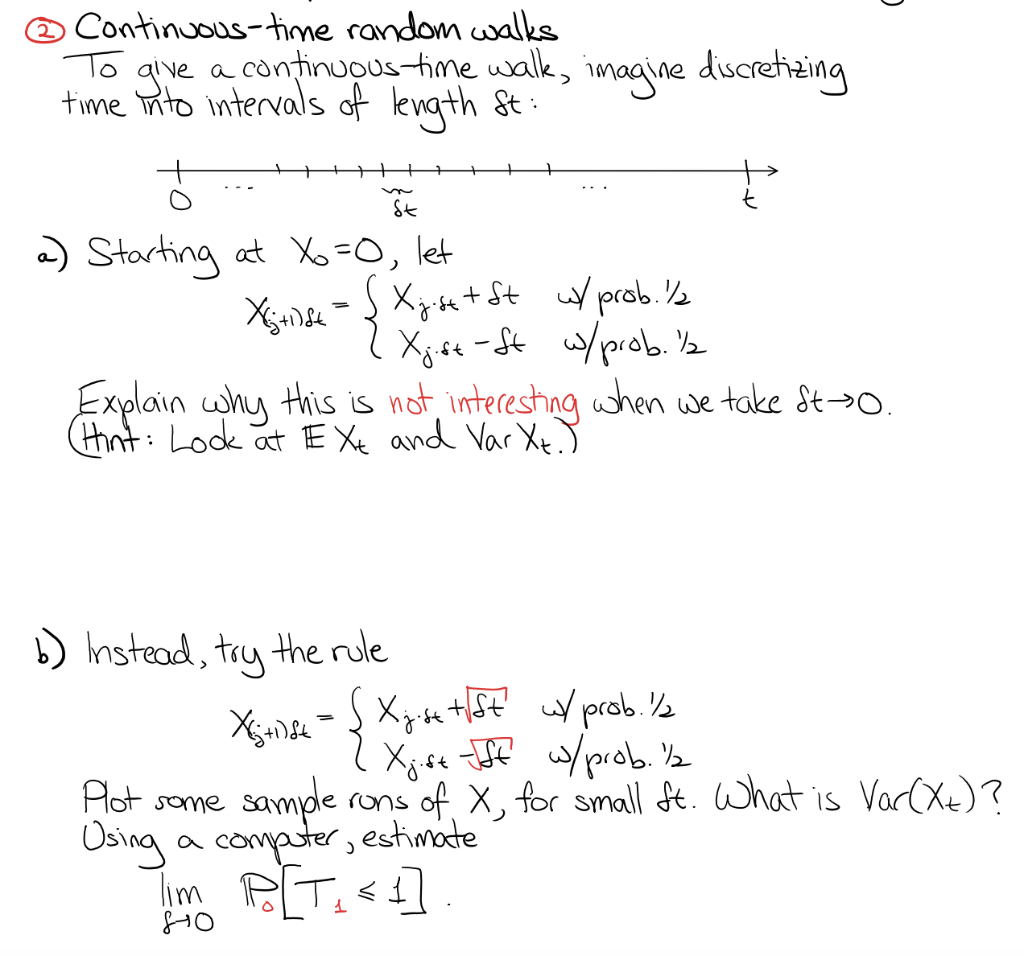 ② Continuous-time random walks
To give a continuous-time walk, imagine discretizing
time into intervals of length δt:
0 ... δt ... t
a) Starting at X₀=0, let
X₍ⱼ₊₁₎δt = { Xⱼ·δt + δt w/ prob. 1/2
Xⱼ·δt − δt w/prob. 1/2
Explain why this is not interesting when we take δt→0.
(Hint: Look at 𝔼 Xₜ and Var Xₜ.)
b) Instead, try the rule
X₍ⱼ₊₁₎δt = { Xⱼ·δt + √δt w/ prob. 1/2
Xⱼ·δt − √δt w/prob. 1/2
Plot some sample runs of X, for small δt. What is Var(Xₜ)?
Using a computer, estimate
lim ℙ₀[T₁ ≤ 1].
δ→0